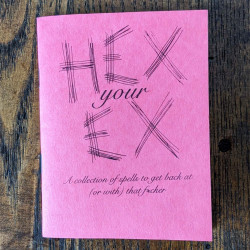 HEX
your
EX
A collection of spells to get back at
(or with) that f*cker